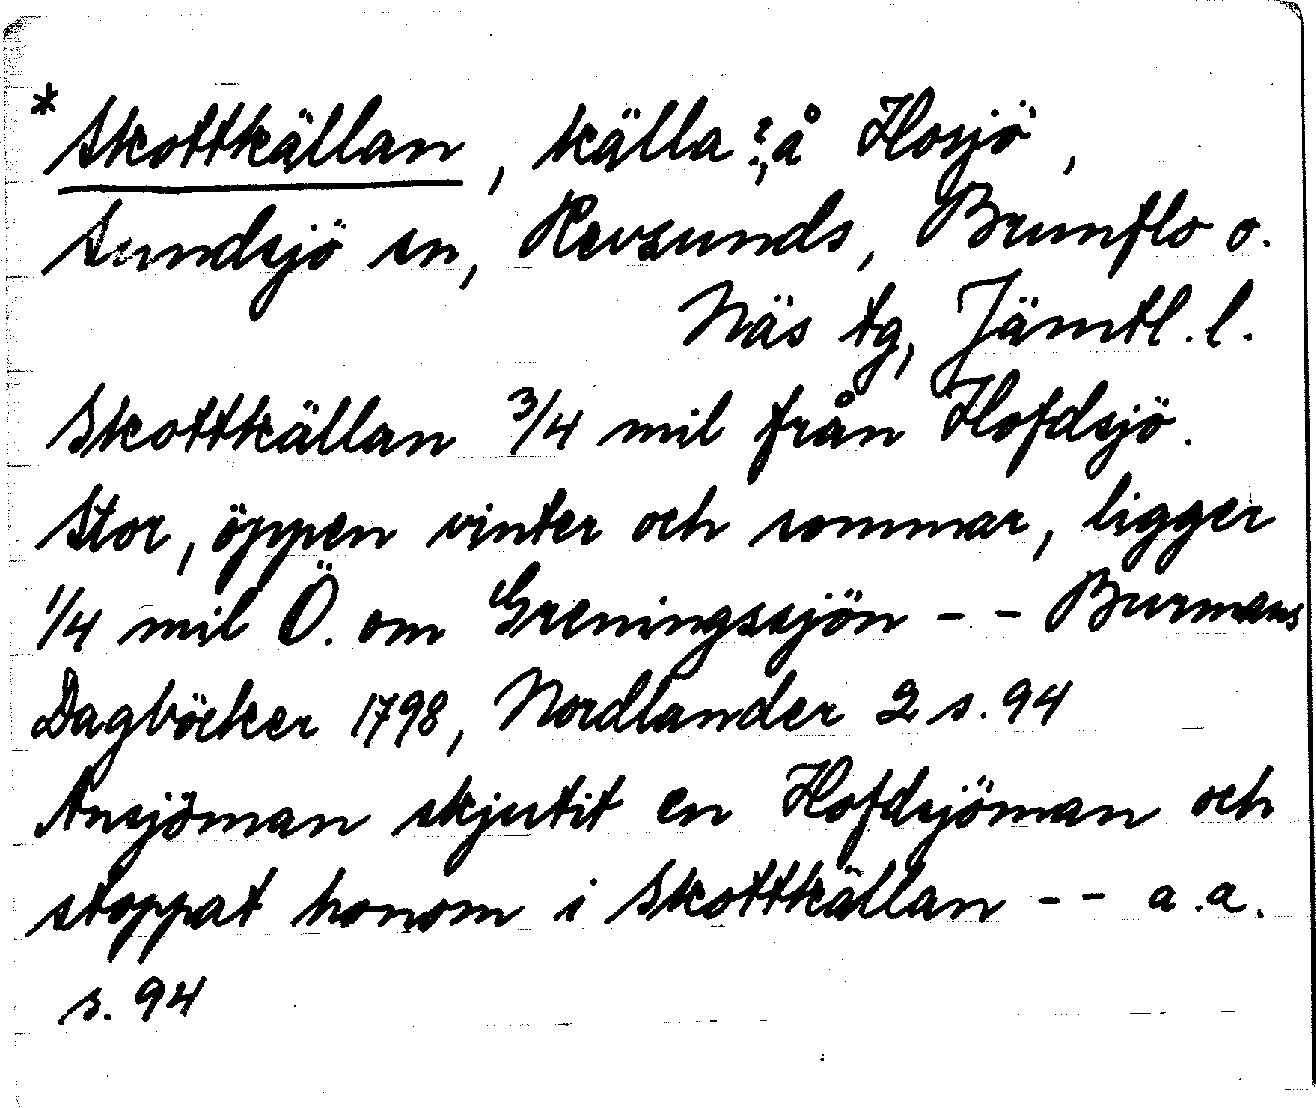 * Skottkällan, källa ?, å Hosjö,
Sundsjö sn, Revsunds, Brunflo o.
Näs tg, Jämtl. l.
Skottkällan 3/4 mil från Hofdsjö.
Stor, öppen vinter och sommar, ligger
1/4 mil Ö. om Greningssjön - - Burmans
Dagböcker 1798, Nordlander 2 s. 94
Ansjöman skjutit en Hofdsjöman och
stoppat honom i Skottkällan - - a.a.
s. 94